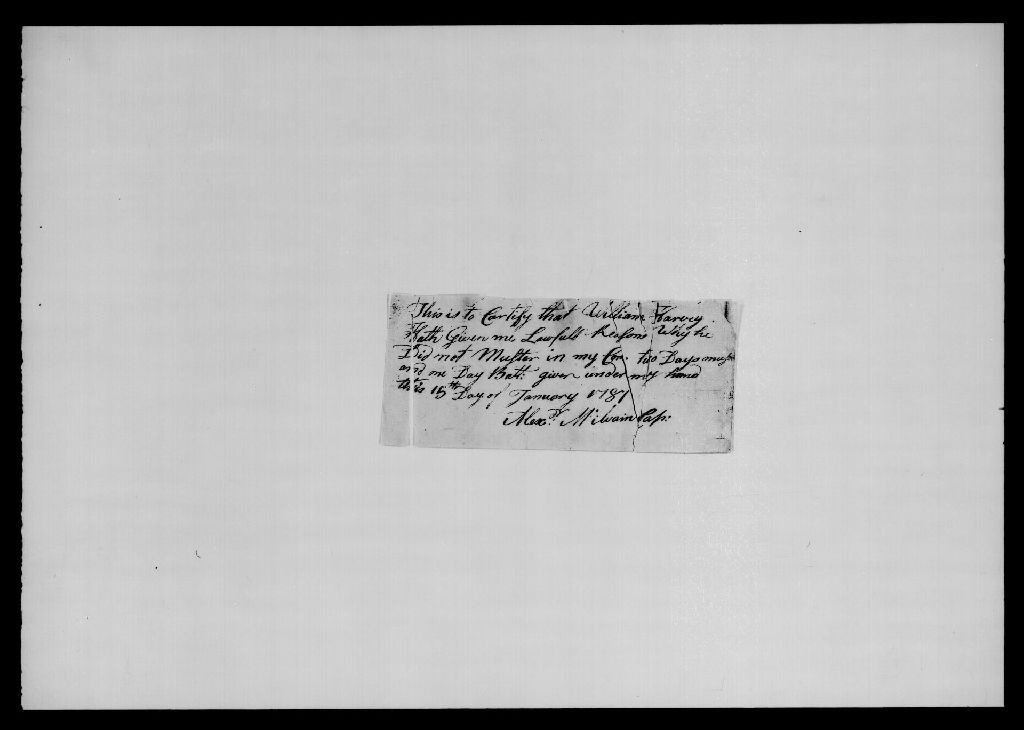 This is to Certify that William Harvey
Hath Given me Lawfull Reasons Why he
Did not Muster in my Con: two Days
and one Day Batt: given under my hand
this 15th Day of January 1787
Alexr. McIlvain Capn: